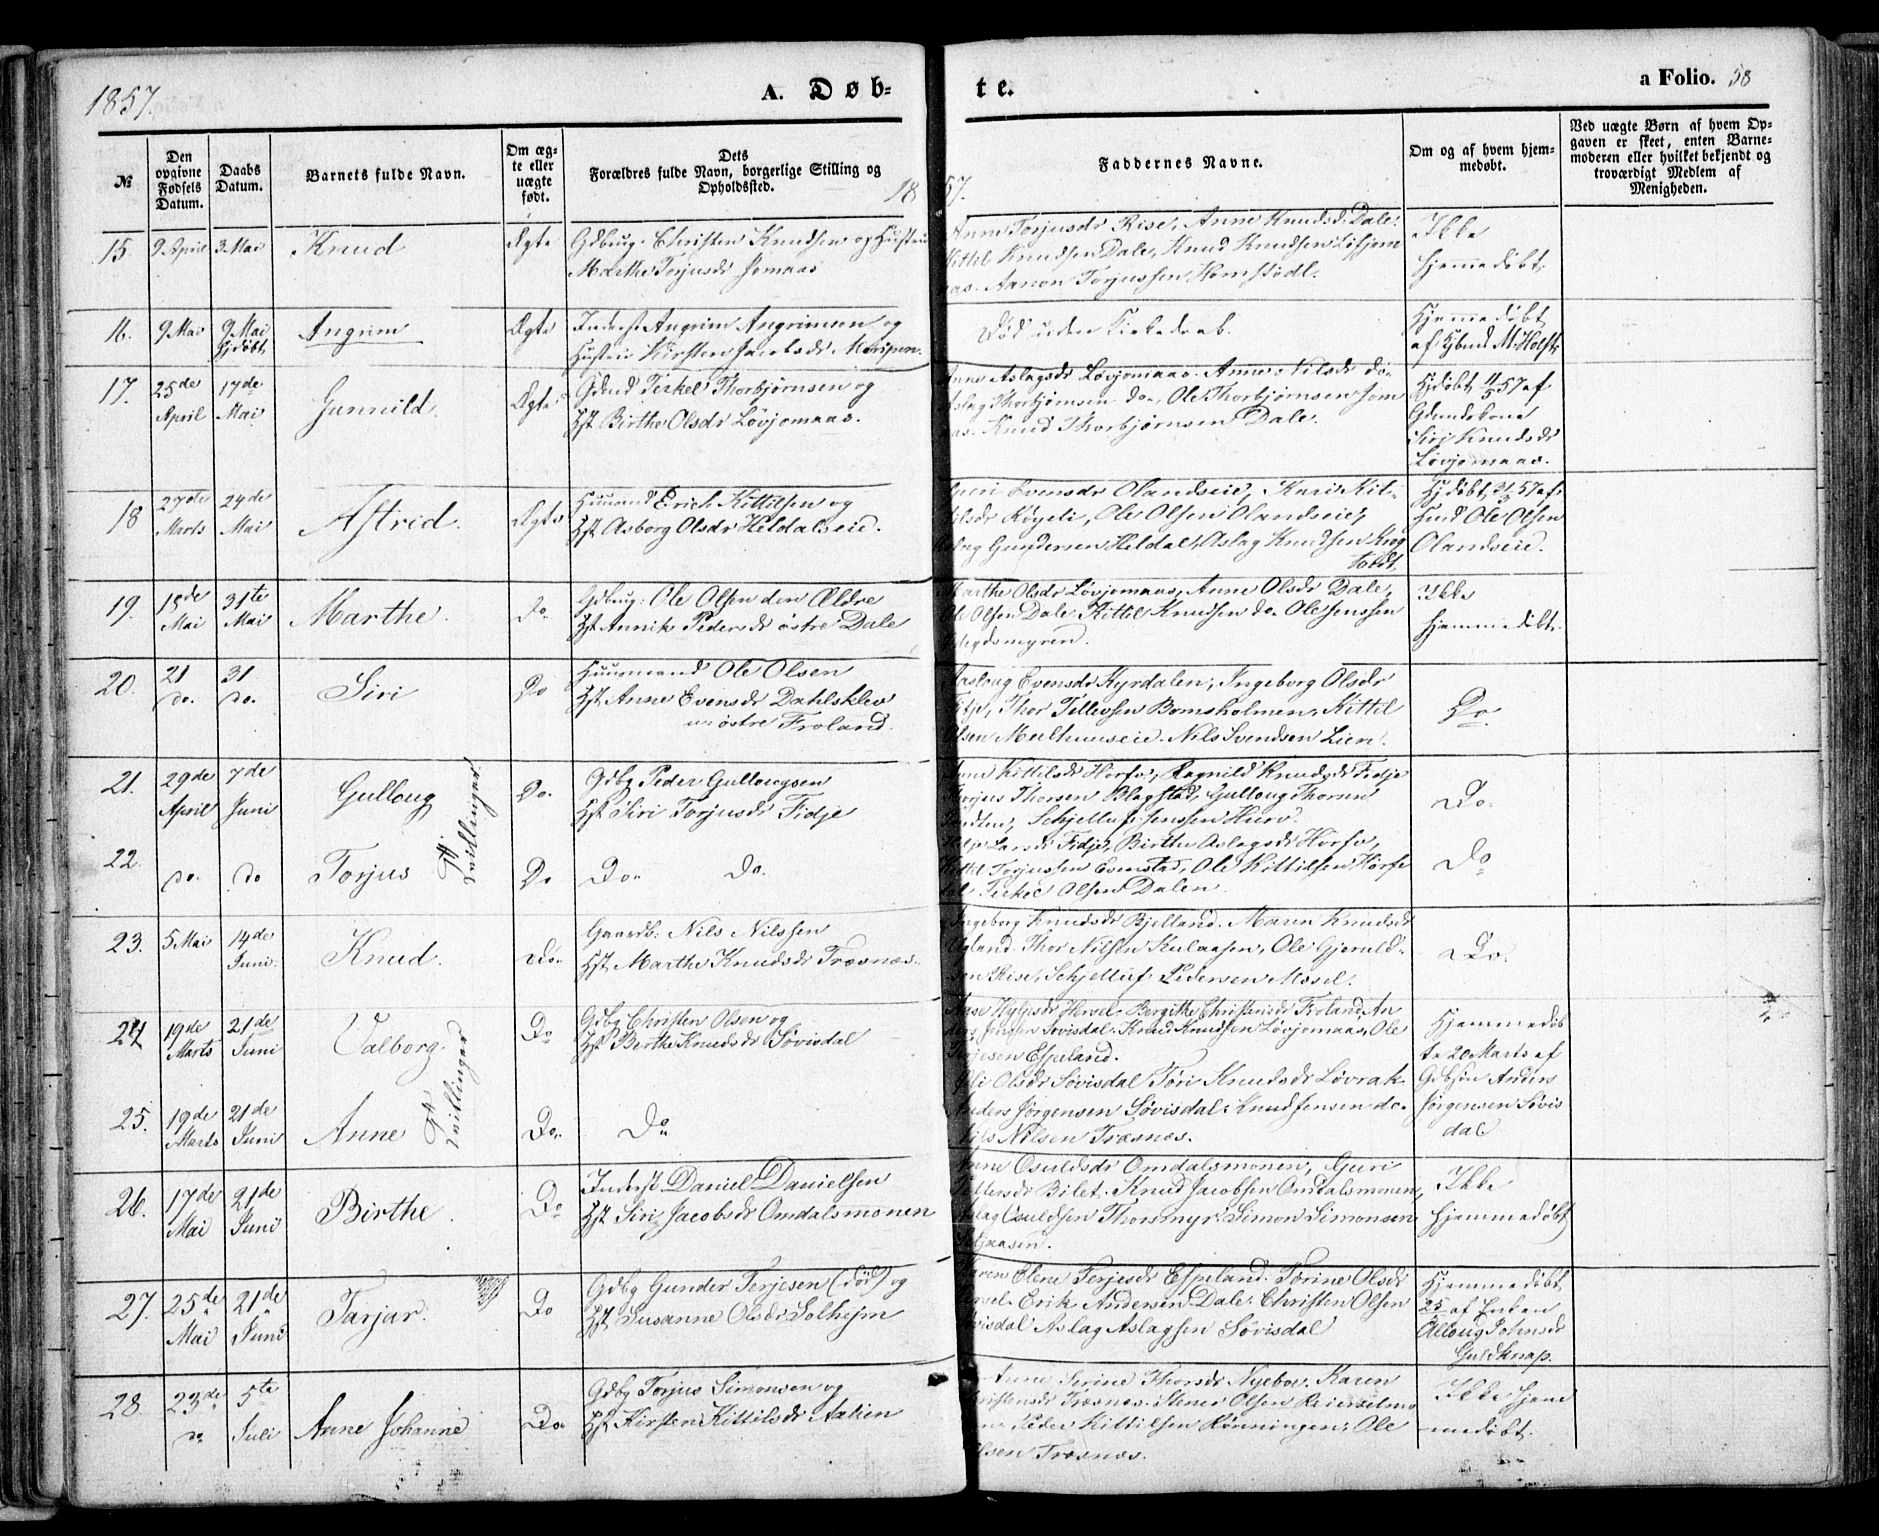 1857.
A. Døb-
te.
a Folio. 58
№
Den opgivne Fødsels Datum.
Daabs Datum.
Barnets fulde Navn.
Om ægte eller uægte født.
Dets Forældres fulde Navn, borgerlige Stilling og Opholdssted.
Faddernes Navne.
Om og af hvem hjemmedøbt.
Ved uægte Børn af hvem Opgaven er skeet, enten Barnemoderen eller hvilket bekjendt og troværdigt Medlem af Menigheden.
1857.
15. 9 April 3 Mai Knud Ægte Gdbrug. Christen Knudsen og Hustru
Marthe Torjusdr Jomaas
Anne Torjusdr Rise, Anne Knudsd. Dale.
Kittil Knudsen Dale, Knud Knudsen Løvjom
aas. Aanon Torjussen
Ikke
hjemmedøbt.
16. 9 Mai 9 Mai Hjdøbt Angrim Ægte Inderst Angrim Angrimsen og
Hustru Kirsten Jacobsdr Møripen.
Død uden Kirkedaab.
Hjemmedøbt
af Hbmd M. Holst
17. 25de April 17de Mai Gunnild. Ægte Gdmd Terkel Thorbjørnsen og
Hst Birthe Olsdr Løvjomaas.
Anne Aslagsdr Løvjomaas. Anne Nilsdr do.
Aslag Thorbjørnsen do., Ole Thorbjørnsen Jom
aas. Knud Thorbjørnsen Dale.
Hjdøbt 11/5 57 af
Gdmdskone
Siri Knudsdr
Løvjomaas.
18 27de Marts 24de Mai Astrid. Ægte Huusmd Erich Kittilsen og
Hst Asborg Olsdr Heldalseie.
Guri Evensdr Olandseie, Kari Kit-
tilsdr Røyeli, Ole Olsen Olandseie,
Aslag Gundersen Heldal, Aslag Knudsen Krog
tvedt.
Hjdøbt 57 af
Husmd Ole Olsen
Olandseie.
19. 15de Mai 31te Mai Marthe. Do Gdbrug: Ole Olsen den Ældre
Hst Annik Pedersdr østre Dale
Marthe Olsdr Løvjomaas, Anne Olsdr Dale,
Ole Olsen Dale. Kittil Knudsen do. Ole Jenssen
Ikke
hjemmedøbt.
20. 21 do. 31 do. Siri Do Huusmand Ole Olsen
Hst Anne Evensdr Dahlsklev
u. østre Froland.
Aasloug Evensdr Hyrdalen, Ingeborg Olsdr
Thor Tellevsen Bomsholmen, Kittil
Olsen Meelhuuseie. Nils Svendsen Lien.
Do.
21. 29de April 7de Juni Gulloug Tvillinger. Do. Gdbg Peder Gullougsen
Hst Siri Torjusdr Fidje
Anne Kittilsdr Hørfe, Ragnild Knudsdr Fidje
Torjus Thorsen Blagstad, Gulloug Thorsen
Schjelluf Jenssen Hurv.
Do.
22. do. do Torjus Do Do. Do.
Larsdr Fidje, Birthe Aslagsdr Hørfe,
Kittil Torjussen Evenstad, Ole Kittilsen Hørfe
dal. Terkel Olsen Dalen.
Do
23. 5 Mai 14de Juni. Knud. Do. Gaardb. Nils Nilssen
Hst Marthe Knudsdr Træsnæs.
Ingeborg Knudsdr Bjelland. Maren Knudsdr
Ugland. Thor Nilsen Kulaasen, Ole Gjeruld-
sen Rise, Schjelluf Pedersen Mosel.
Do.
24. 19de Marts 21de Juni Valborg. Tvillinger Do Gdbg Christen Olsen og
Hst Birthe Knudsdr Søvisdal
Aase Hersel. Bergithe Christensdr Froland. An
ders Jensen Søvisdal. Knud Knudsen Løvjomaas, Ole
Terjesen Espeland.
Hjemmedøb
te 20 Marts af
Gdbson Anders
Jørgensen Søvis
dal
25. 19de Marts 21de Juni Anne Do. Do
Olsdr Søvisdal Tøri Knudsdr Løvrak.
Anders Jørgensen Søvisdal. Knud Jensen do.
Nils Nilsen Træsnæs.
26. 17de Mai 21de Juni Birthe. Do Inderst Daniel Danielsen
Hst Siri Jacobsdr Omdalsmonen
Anne Osuldsdr Omdalsmonen, Guri
Tellefsdr Bilet. Knud Jacobsen Omdalsmonen,
Aslag Osuldsen Thorsmyr. Simon Simonsen
Ikke
hjemmedøbt
27. 25de Mai 21de Juni Tarjar. Do Gdbg Gunder Terjesen (død) og
Hst Susanne Olsdr Solhejm
Maren Elene Terjesdr Espeland. Torine Olsdr
Hersel. Erik Andersen Dale. Christen Olsen
Søvisdal Aslag Aslagsen Søvisdal
Hjemmedøbt
25 af Enken
Alloug Johnsdr
Guldknap.
28 23de do 5te Juli Anne Johanne Do. Gdbg Torjus Simonsen og
Hst Kirsten Kittilsdr Aalien
Anne Serine Thorsdr Nyeboe. Karen
Christensdr Træsnæs. Stener Olsen Reierselmo
nen. Peder Kittilsen Rønningen. Ole
Olsen Træsnæs.
Ikke hjem
medøbt.